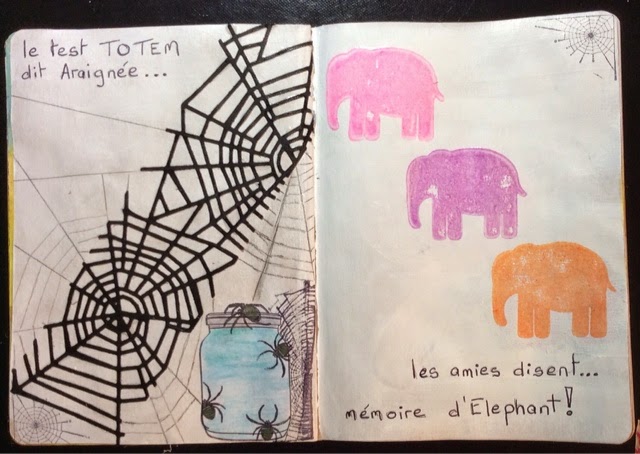 le test TOTEM
dit Araignée...
les amies disent...
mémoire d'Elephant!